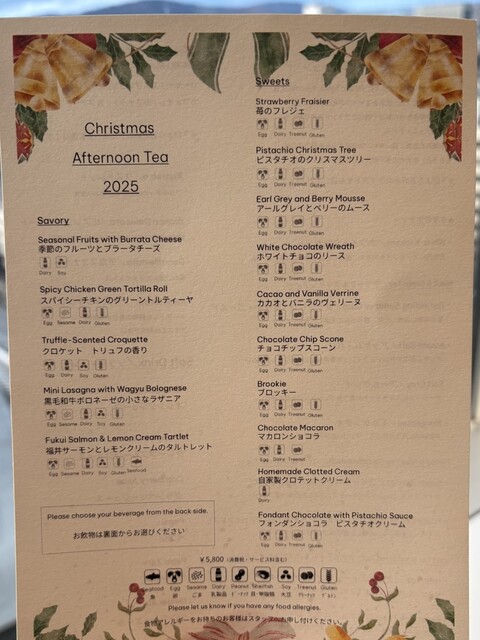 Christmas
Afternoon Tea
2025
Savory
Seasonal Fruits with Burrata Cheese
季節のフルーツとブラータチーズ
Dairy Soy
Spicy Chicken Green Tortilla Roll
スパイシーチキンのグリーントルティーヤ
Egg Sesame Dairy Gluten
Truffle-Scented Croquette
クロケット トリュフの香り
Egg Dairy Soy Gluten
Mini Lasagna with Wagyu Bolognese
黒毛和牛ボロネーゼの小さなラザニア
Egg Sesame Dairy Soy Gluten
Fukui Salmon & Lemon Cream Tartlet
福井サーモンとレモンクリームのタルトレット
Egg Sesame Dairy Soy Gluten Seafood
Please choose your beverage from the back side.
お飲物は裏面からお選びください
Sweets
Strawberry Fraisier
苺のフレジェ
Egg Dairy Treenut Gluten
Pistachio Christmas Tree
ピスタチオのクリスマスツリー
Egg Dairy Treenut Gluten
Earl Grey and Berry Mousse
アールグレイとベリーのムース
Egg Dairy Treenut Gluten
White Chocolate Wreath
ホワイトチョコのリース
Egg Dairy Treenut Gluten
Cacao and Vanilla Verrine
カカオとバニラのヴェリーヌ
Egg Dairy Treenut Gluten
Chocolate Chip Scone
チョコチップスコーン
Egg Dairy Treenut Gluten
Brookie
ブロッキー
Egg Dairy Treenut Gluten
Chocolate Macaron
マカロンショコラ
Egg Dairy Treenut
Homemade Clotted Cream
自家製クロテットクリーム
Dairy
Fondant Chocolate with Pistachio Sauce
フォンダンショコラ ピスタチオクリーム
Egg Dairy Treenut Gluten
￥5,800（消費税・サービス料含む）
Seafood Egg Sesame Dairy Peanut Shellfish Soy Treenut Gluten
卵 ごま 乳製品 ピーナッツ 貝・甲殻類 大豆
Please let us know if you have any food allergies.
食物アレルギーをお持ちのお客様はスタッフへお申し付けください。